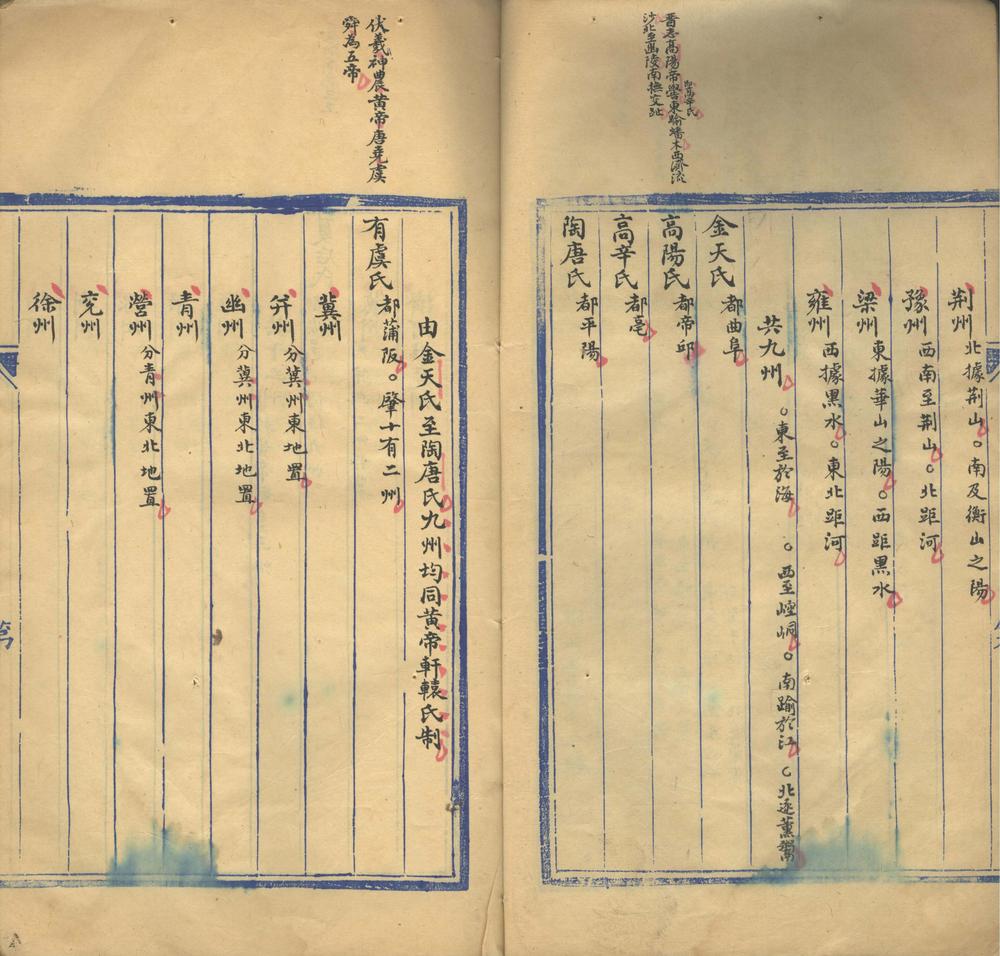 晋志高陽帝嚳東踰蟠木西濟流
即高辛氏
沙北至幽陵南撫交趾
荆州 北據荆山。南及衡山之陽
豫州 西南至荆山。北距河
梁州 東據華山之陽。西距黑水
雍州 西據黑水。東北距河
共九州 。東至於海 。西至崆峒。南踰於江。北逐薰鬻
金天氏 都曲阜
高陽氏 都帝邱
高辛氏 都亳
陶唐氏 都平陽
伏羲神農黄帝唐堯虞
舜為五帝
由金天氏至陶唐氏九州均同黄帝軒轅氏制
有虞氏 都蒲阪。肇十有二州
冀州
并州 分冀州東地置
幽州 分冀州東北地置
青州
營州 分青州東北地置
兖州
徐州